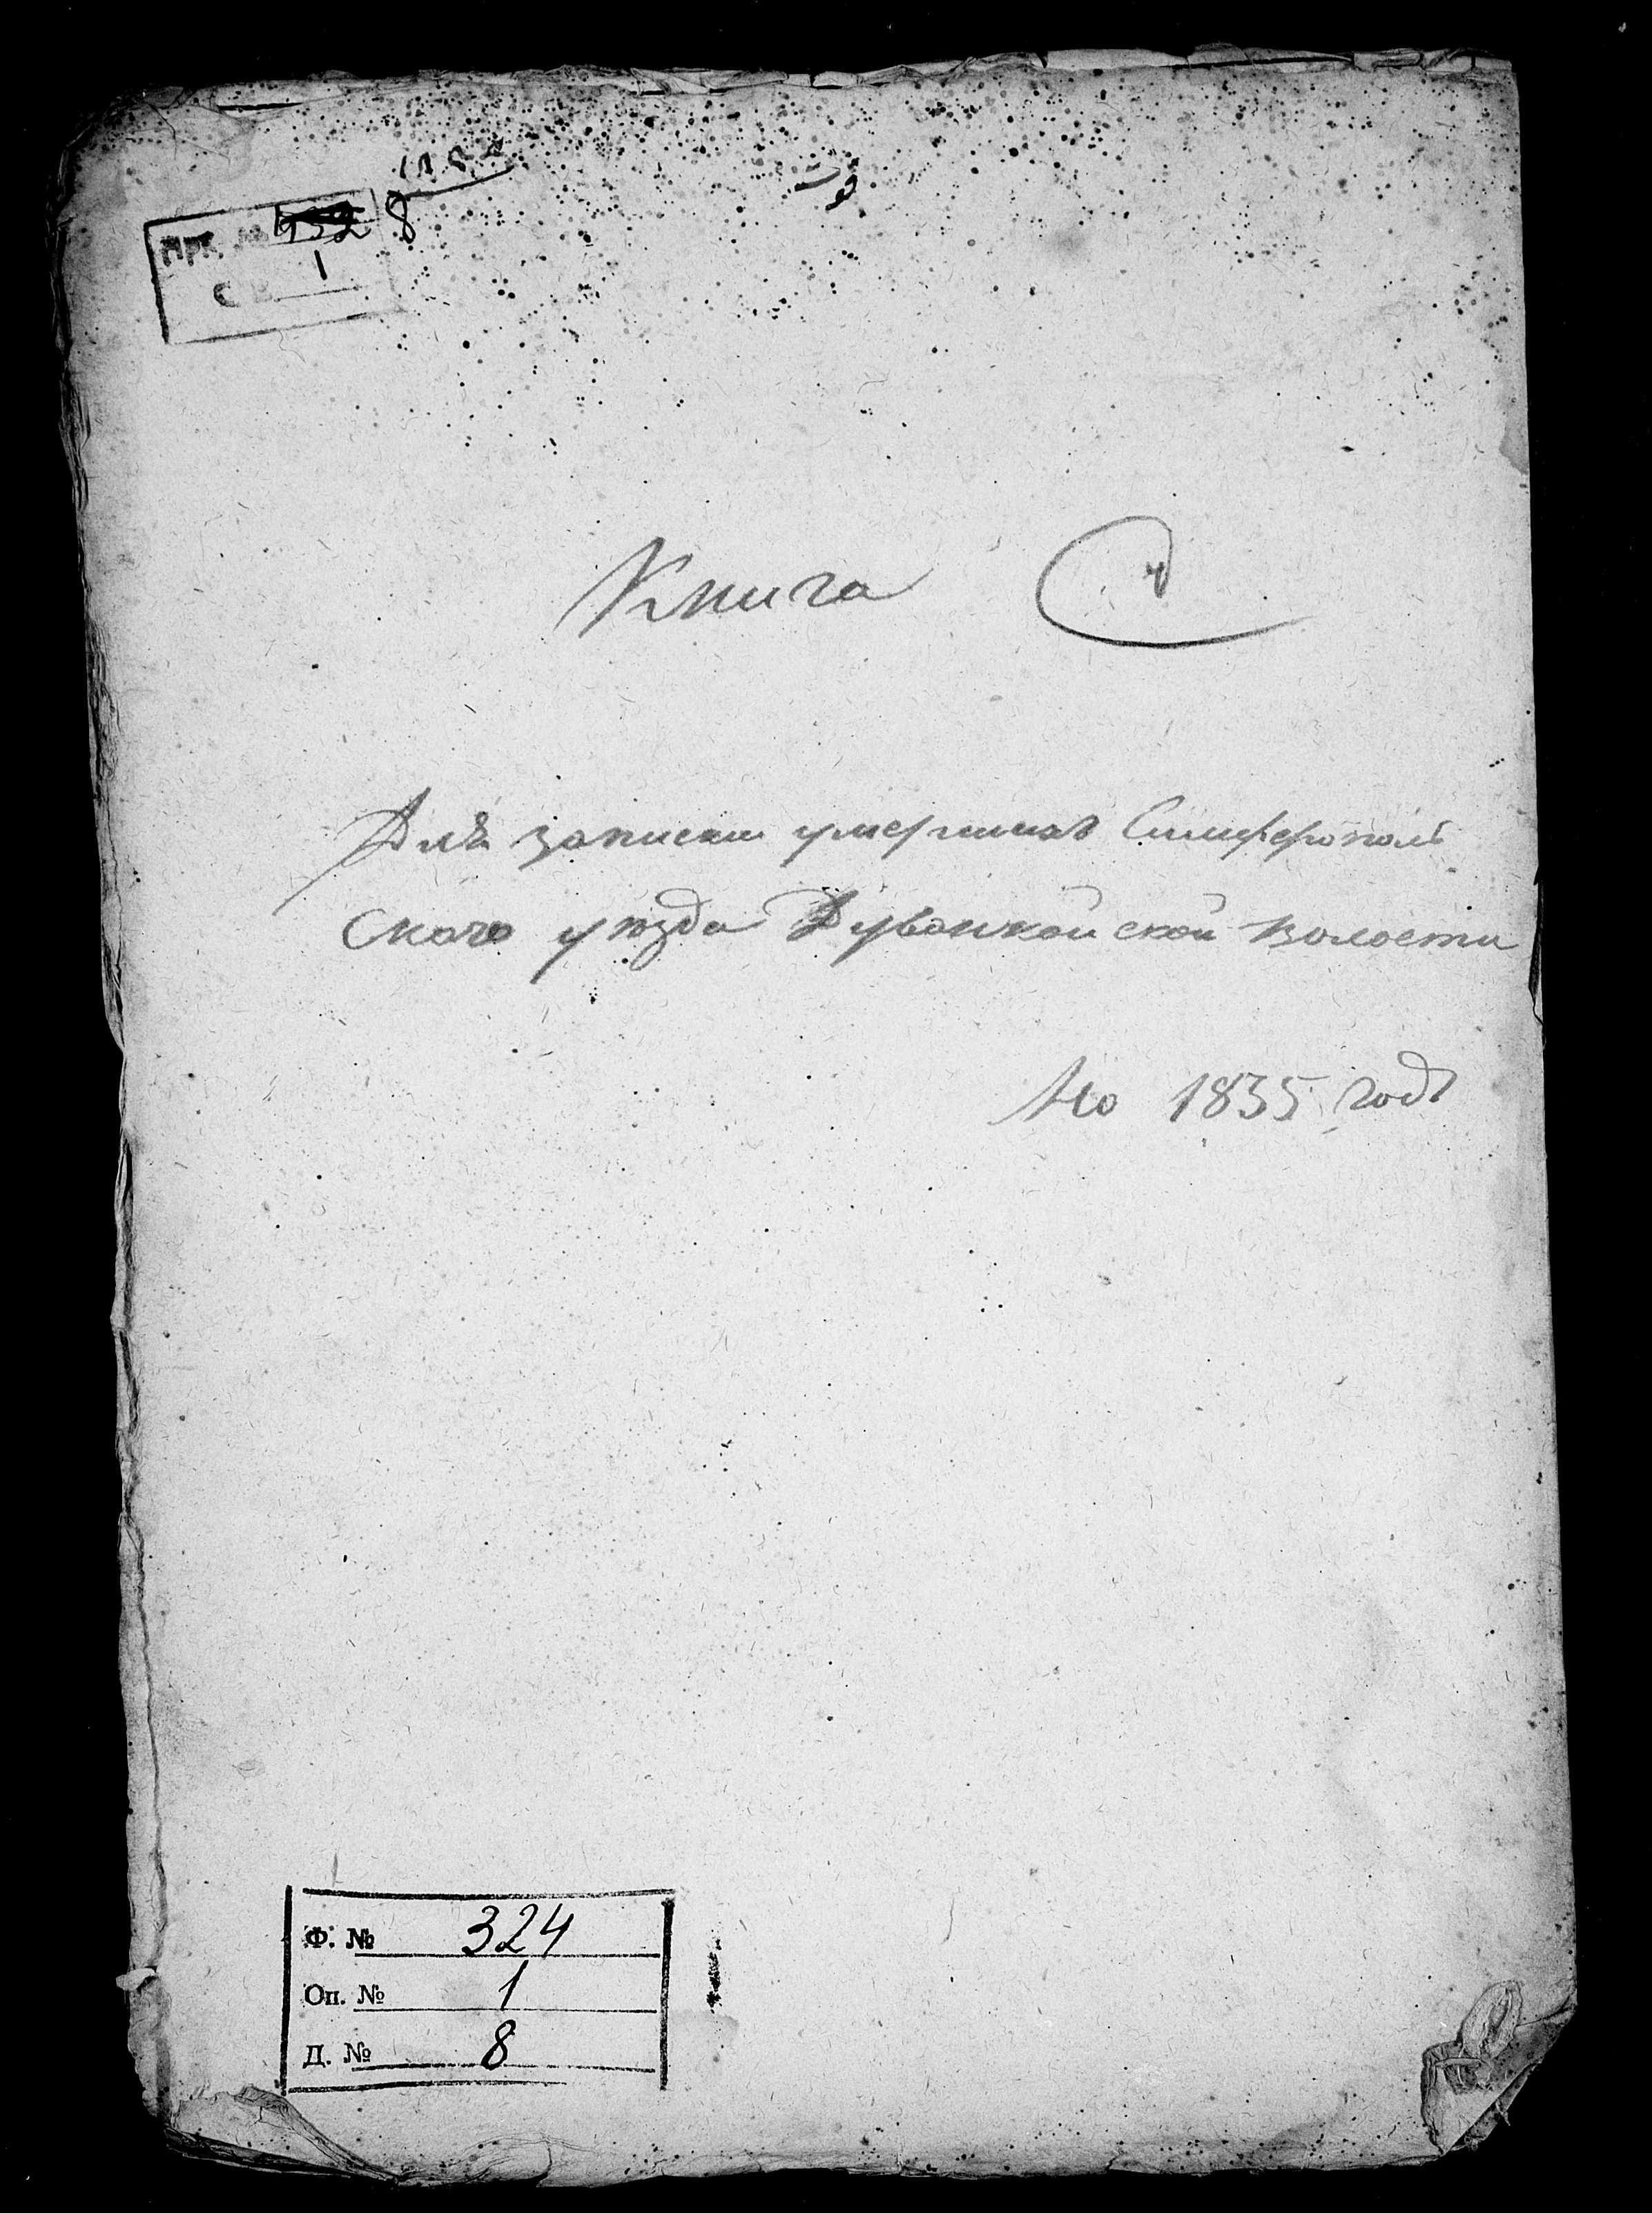 8
1
Книга
Для записки умершихъ Симферополь
Скаго уѣзда Дуванкойской волости
На 1835 годъ
Ф. № 324
Оп. № 1
Д. № 8